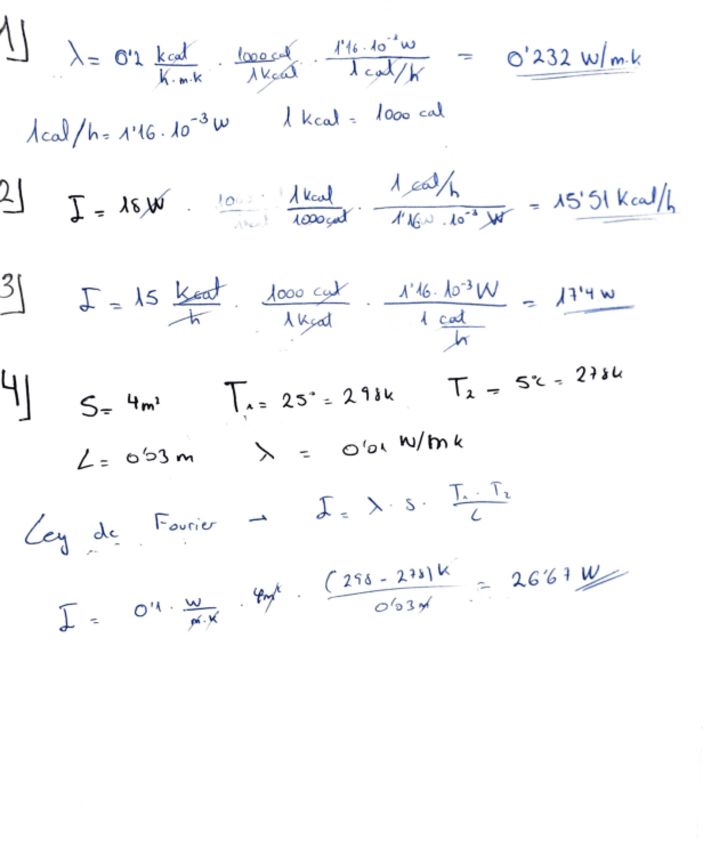 1] λ = 0'2 kcal/h.m.k . 1000 cal/1 kcal . 1'16.10⁻³w/1 cal/h = 0'232 W/m.k
1cal/h = 1'16.10⁻³W 1 kcal = 1000 cal
2] I = 18 W . 1 kcal/1000 cal . 1 cal/h/1'16 . 10⁻³ W = 15'51 Kcal/h
3] I = 15 kcal/h . 1000 cal/1 kcal . 1'16.10⁻³W/1 cal/h = 17'4 w
4] S = 4m² T₁ = 25° = 298k T₂ = 5°c = 278k
L = 0'03 m λ = 0'01 W/mk
Ley de Fourier → I = λ . S . T₁ - T₂/L
I = 0'1 . W/m.K . 4m² . (298 - 278)K/0'03m = 26'67 W